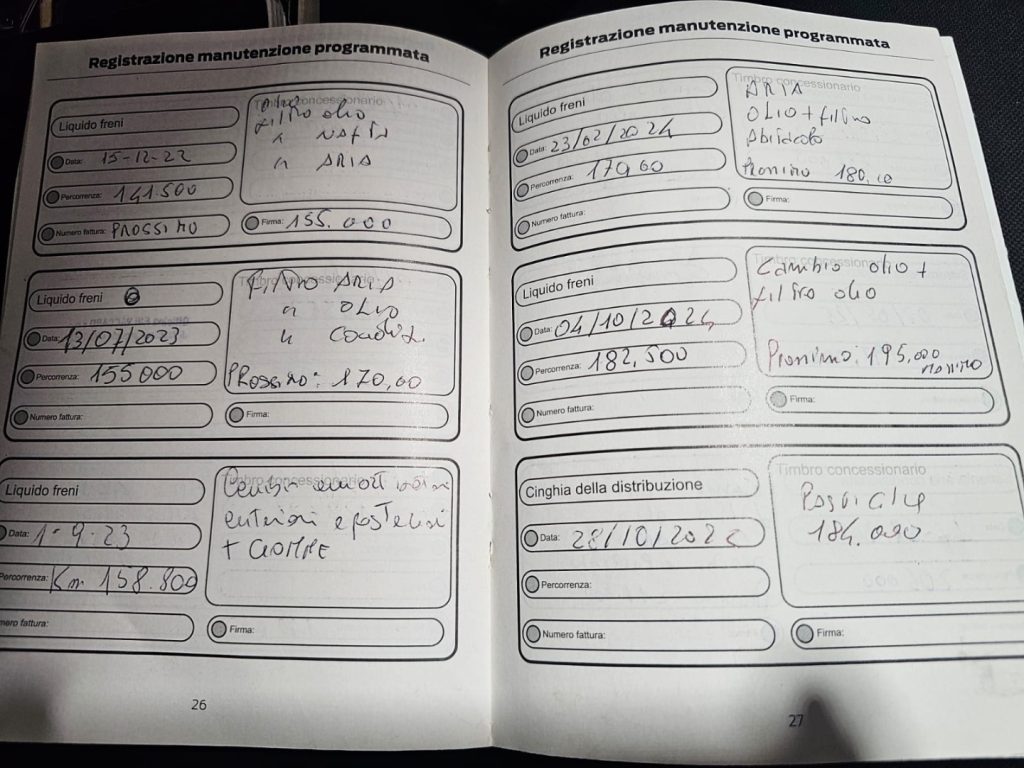 Registrazione manutenzione programmata
Liquido freni
Timbro concessionario
filtro olio
" NAFTA
" ARIA
Data: 15-12-22
Percorrenza: 141500
Numero fattura: PROSSIMO
Firma: 155.000
Liquido freni
Timbro concessionario
FILTRO ARIA
" OLIO
"
Data: 13/07/2023
Percorrenza: 155000
PROSSIMO: 170,00
Numero fattura:
Firma:
Liquido freni
Timbro concessionario
+ GOMME
Data: 1-9-23
Percorrenza: Km 158.800
Numero fattura:
Firma:
26
Registrazione manutenzione programmata
Liquido freni
Timbro concessionario
ARIA
OLIO + filtro
Abitacolo
Prossimo 180,00
Data: 23/02/2024
Percorrenza: 17000
Numero fattura:
Firma:
Liquido freni
Timbro concessionario
Cambio olio +
filtro olio
Data: 04/10/2024
Percorrenza: 182,500
Prossimo: 195,000
Numero fattura:
Firma:
Cinghia della distribuzione
Timbro concessionario
184.000
Data: 28/10/202
Percorrenza:
Numero fattura:
Firma:
27